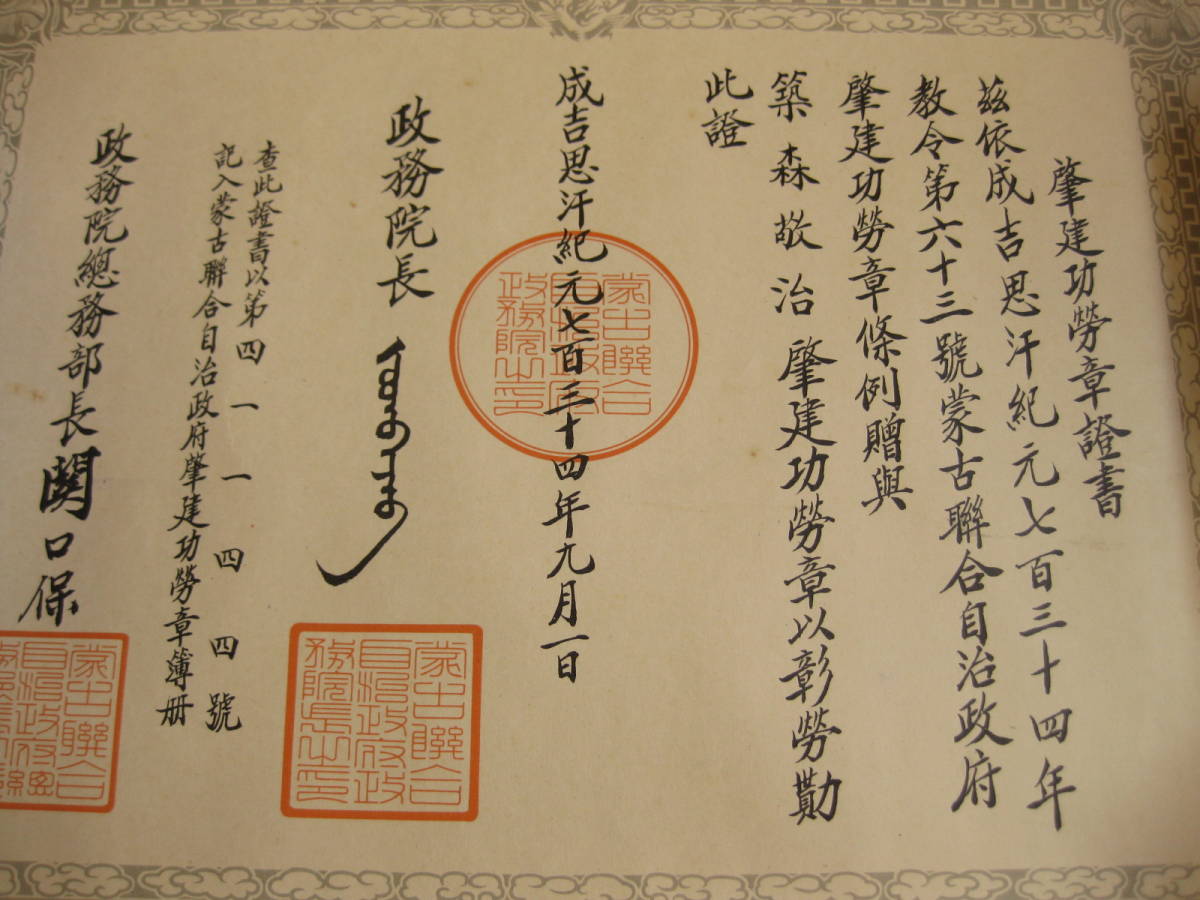 肇建功勞章證書
茲依成吉思汗紀元七百三十四年
教令第六十三號蒙古聯合自治政府
肇建功勞章條例贈與
築森敬治肇建功勞章以彰勞勩
此證
成吉思汗紀元七百三十四年九月一日
蒙古聯合
自治政府
政務院之印
政務院長
蒙古聯合
自治政府政
務院長之印
查此證書以第四一一四四號
記入蒙古聯合自治政府肇建功勞章簿册
政務院總務部長關口保
蒙古聯合
自治政府